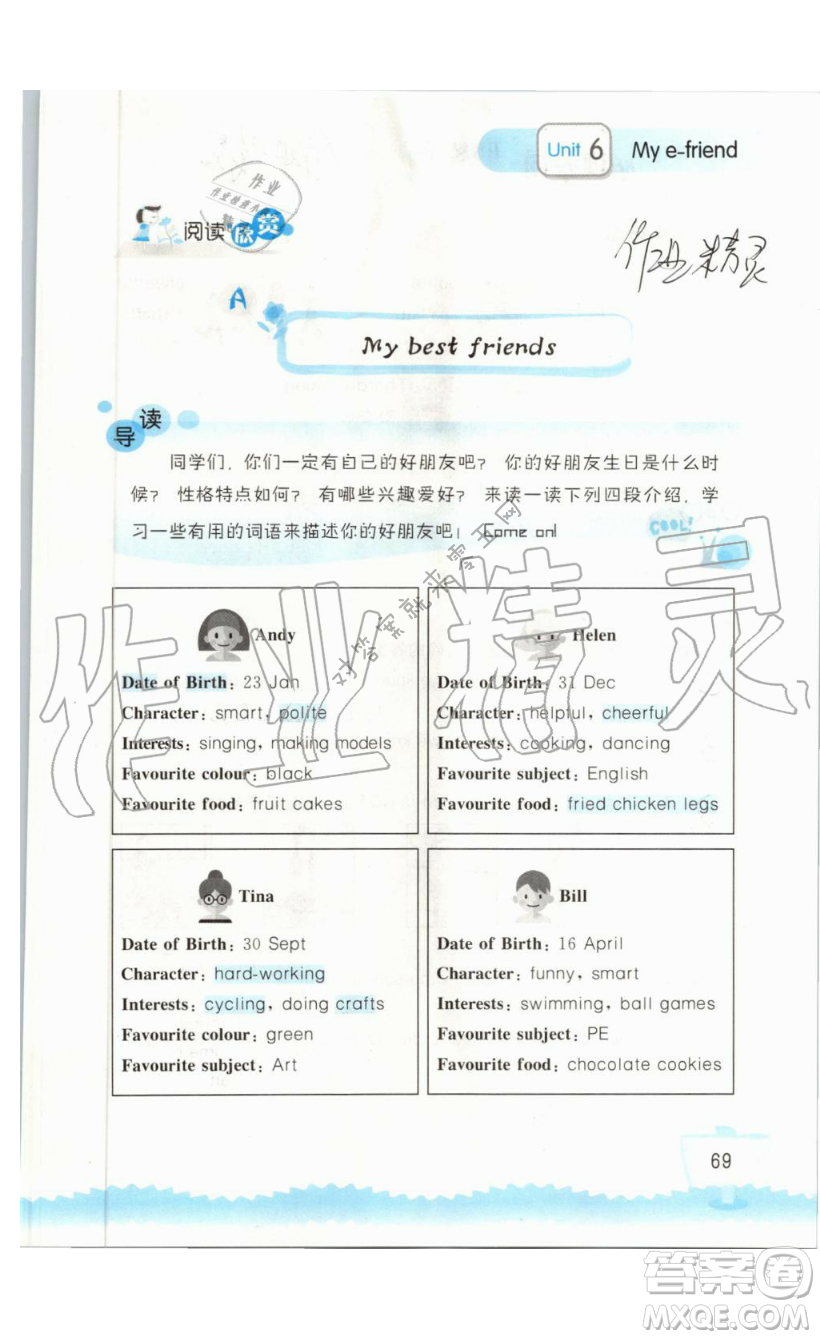 Unit 6 My e-friend
作业
阅读欣赏
作业精灵
A
My best friends
导读
同学们，你们一定有自己的好朋友吧？ 你的好朋友生日是什么时
候？ 性格特点如何？ 有哪些兴趣爱好？ 来读一读下列四段介绍，学
习一些有用的词语来描述你的好朋友吧！ Come on!
COOL!
对答案就来零五网
作业精灵
Andy
Date of Birth: 23 Jan
Character: smart, polite
Interests: singing, making models
Favourite colour: black
Favourite food: fruit cakes
Helen
Date of Birth: 31 Dec
Character: helpful, cheerful
Interests: cooking, dancing
Favourite subject: English
Favourite food: fried chicken legs
Tina
Date of Birth: 30 Sept
Character: hard-working
Interests: cycling, doing crafts
Favourite colour: green
Favourite subject: Art
Bill
Date of Birth: 16 April
Character: funny, smart
Interests: swimming, ball games
Favourite subject: PE
Favourite food: chocolate cookies
69
答案卷
MXQE.COM